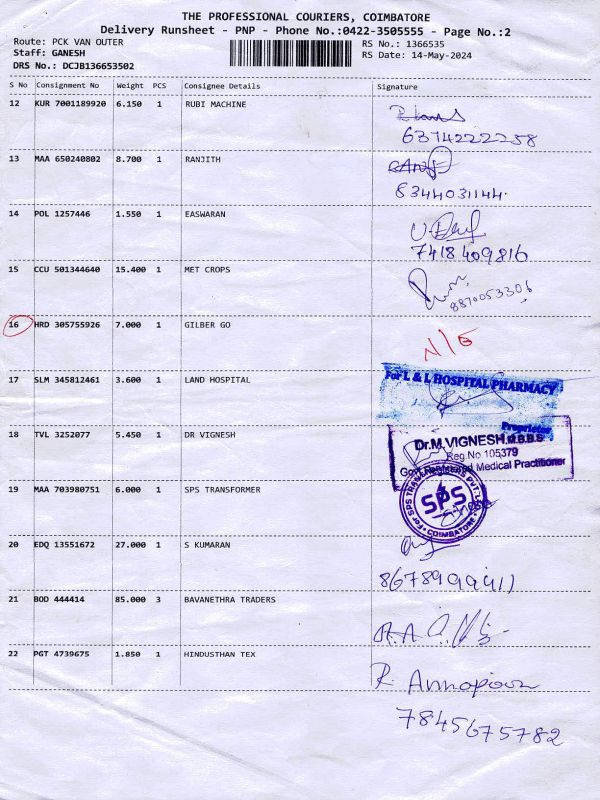 THE PROFESSIONAL COURIERS, COIMBATORE
Delivery Runsheet - PNP - Phone No.:0422-3505555 - Page No.:2
Route: PCK VAN OUTER
Staff: GANESH
DRS No.: DCJB136653502
RS No.: 1366535
RS Date: 14-May-2024
S No Consignment No Weight PCS Consignee Details Signature
12 KUR 7001189920 6.150 1 RUBI MACHINE
6374222258
13 MAA 650240802 8.700 1 RANJITH
8344031144
14 POL 1257446 1.550 1 EASWARAN
7418409816
15 CCU 501344640 15.400 1 MET CROPS
8870053306
16 HRD 305755926 7.000 1 GILBER GO
N/S
17 SLM 345812461 3.600 1 LAND HOSPITAL
For L & L HOSPITAL PHARMACY
Proprietor
18 TVL 3252077 5.450 1 DR VIGNESH
Dr.M.VIGNESH.M.B.B.S
Reg.No.105379
Govt.Registered Medical Practitioner
19 MAA 703980751 6.000 1 SPS TRANSFORMER
For SPS
SPS
COIMBATORE
20 EDQ 13551672 27.000 1 S KUMARAN
8678999911
21 BOD 444414 85.000 3 BAVANETHRA TRADERS
22 PGT 4739675 1.850 1 HINDUSTHAN TEX
7845675782